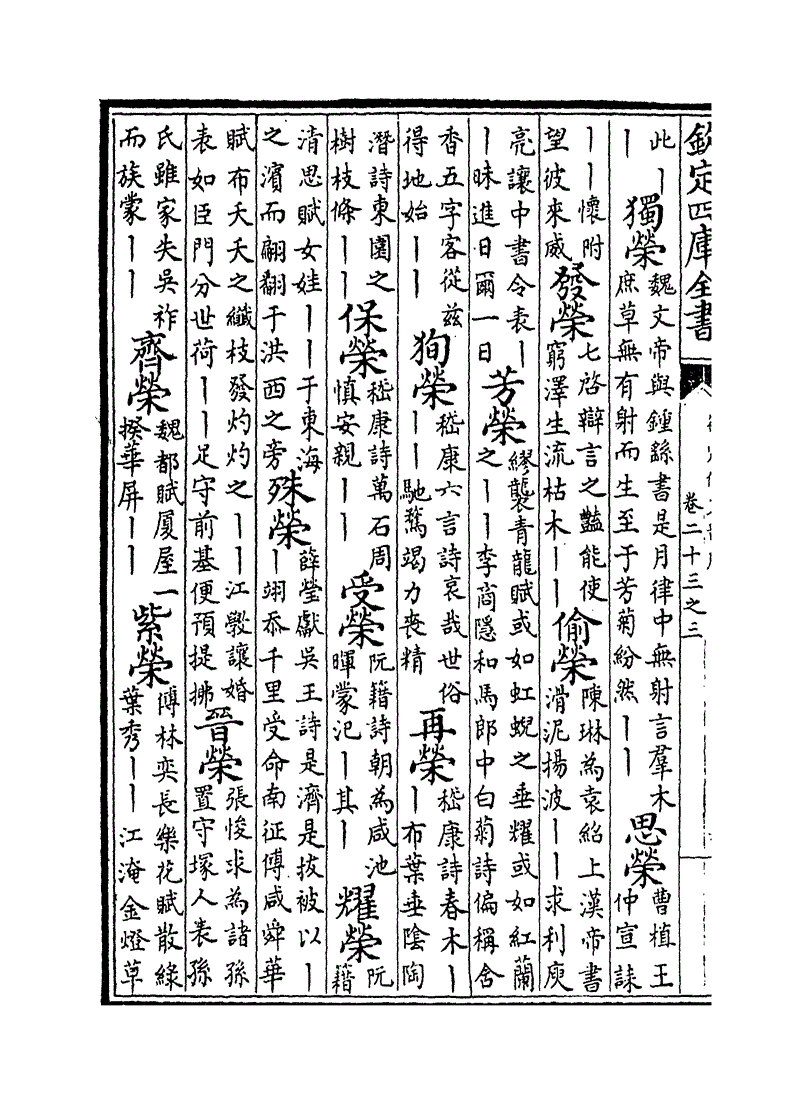 欽定四庫全書
卷二十三之三
此丨丨獨榮魏文帝與鍾繇書是月律中無射言羣木庶草無有射而生至于芳菊紛然丨丨思榮曹植王仲宣誄
丨丨懷附望彼來威發榮七啓辯言之豔能使窮澤生流枯木丨丨偷榮陳琳為袁紹上漢帝書滑泥揚波丨丨求利庾
亮讓中書令表丨丨昧進日爾一日芳榮繆襲青龍賦或如虹蜺之垂耀或如紅蘭之丨丨李商隱和馬郎中白菊詩偏稱含
香五字客從兹得地始丨丨狥榮嵇康六言詩哀哉世俗丨丨馳騖竭力喪精再榮嵇康詩春木丨丨布葉垂陰陶
潛詩東園之樹枝條丨丨保榮嵇康詩萬石周慎安親丨丨受榮阮籍詩朝為咸池暉蒙汜丨其丨耀榮阮籍
清思賦女娃丨丨于東海之濱而翩翻于洪西之旁殊榮薛瑩獻吳王詩是濟是拔被以丨丨翊忝千里受命南征傅咸舜華
賦布夭夭之纖枝發灼灼之丨丨江斅讓婚表如臣門分世荷丨丨足守前基便預提拂晉榮張悛求為諸孫置守塚人表孫
氏雖家失吳祚而族蒙丨丨齊榮魏都賦厦屋一揆華屏丨丨紫榮傅林奕長樂花賦散綠葉秀丨丨江淹金燈草